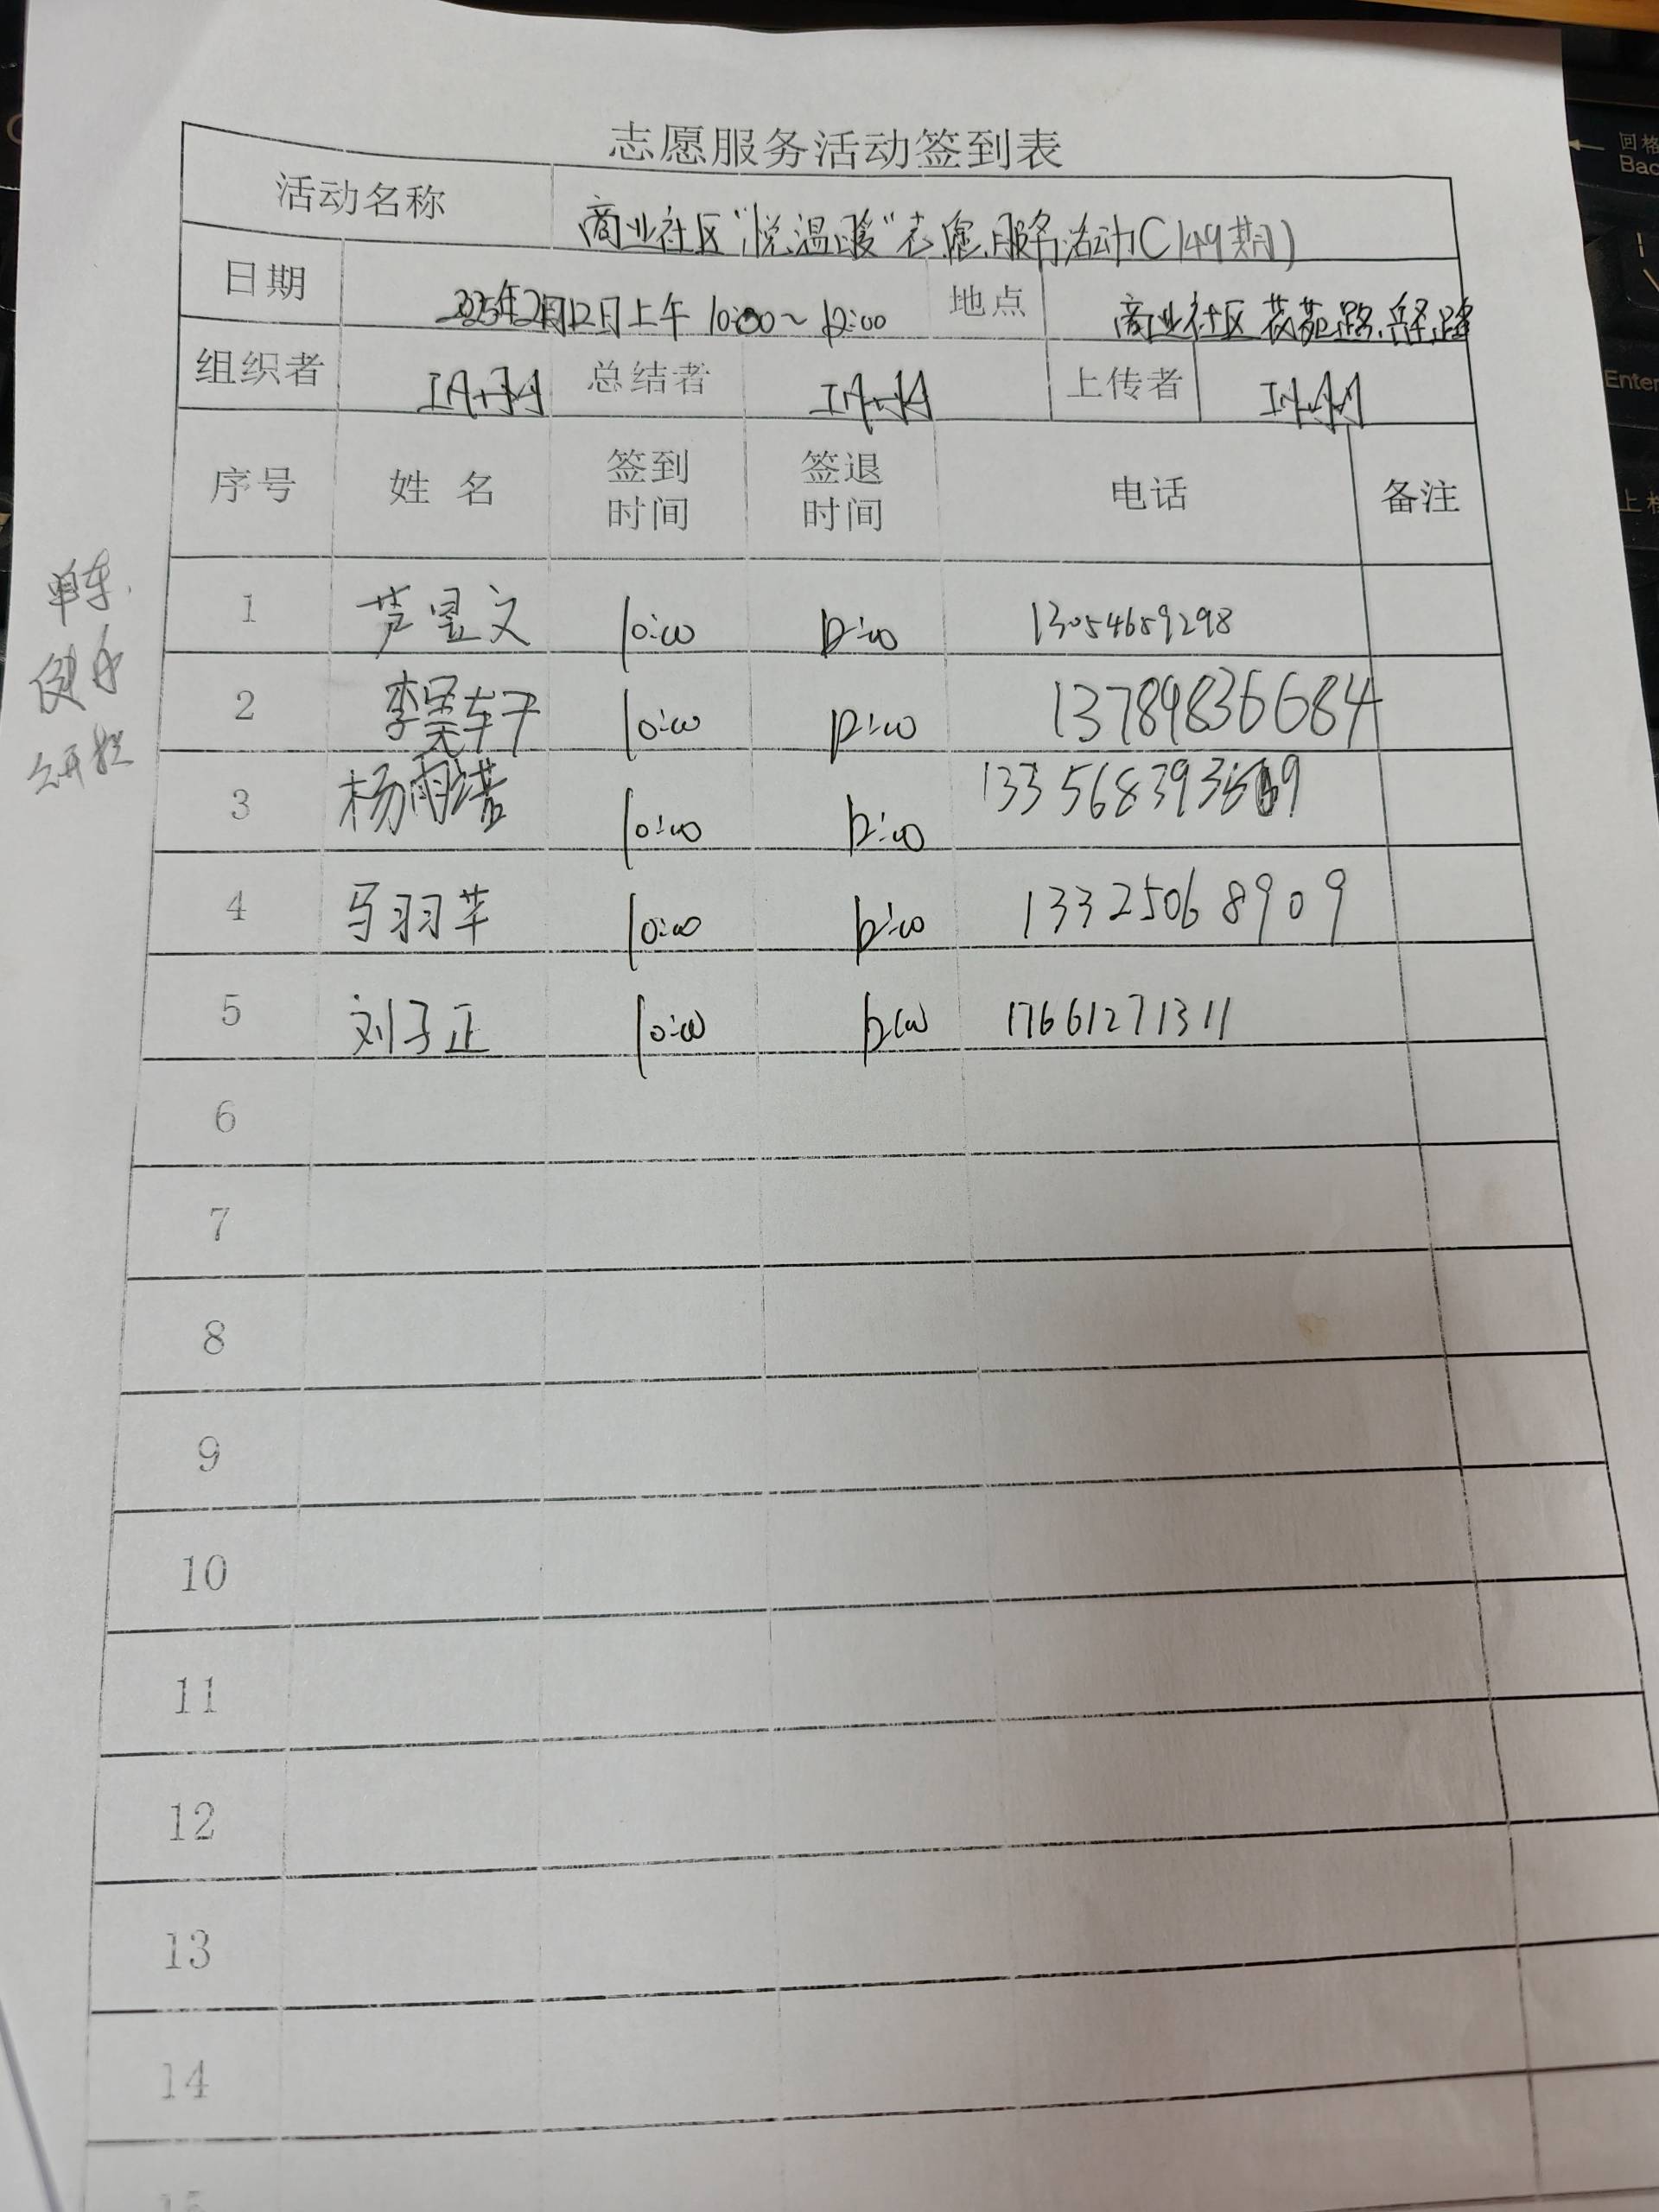 志愿服务活动签到表
活动名称 商业社区“悦温暖”志愿服务活动(149期)
日期 2025年2月12日上午10:00~12:00 地点 商业社区 路、路
组织者 总结者 上传者
序号 姓名 签到时间 签退时间 电话 备注
1 芦昱文 10:00 12:00 13054659298
2 李昊轩 10:00 12:00 13789836684
3 杨雨诺 10:00 12:00
4 马羽芊 10:00 12:00 13325068909
5 刘子正 10:00 12:00 17661271311
6
7
8
9
10
11
12
13
14
15
单车